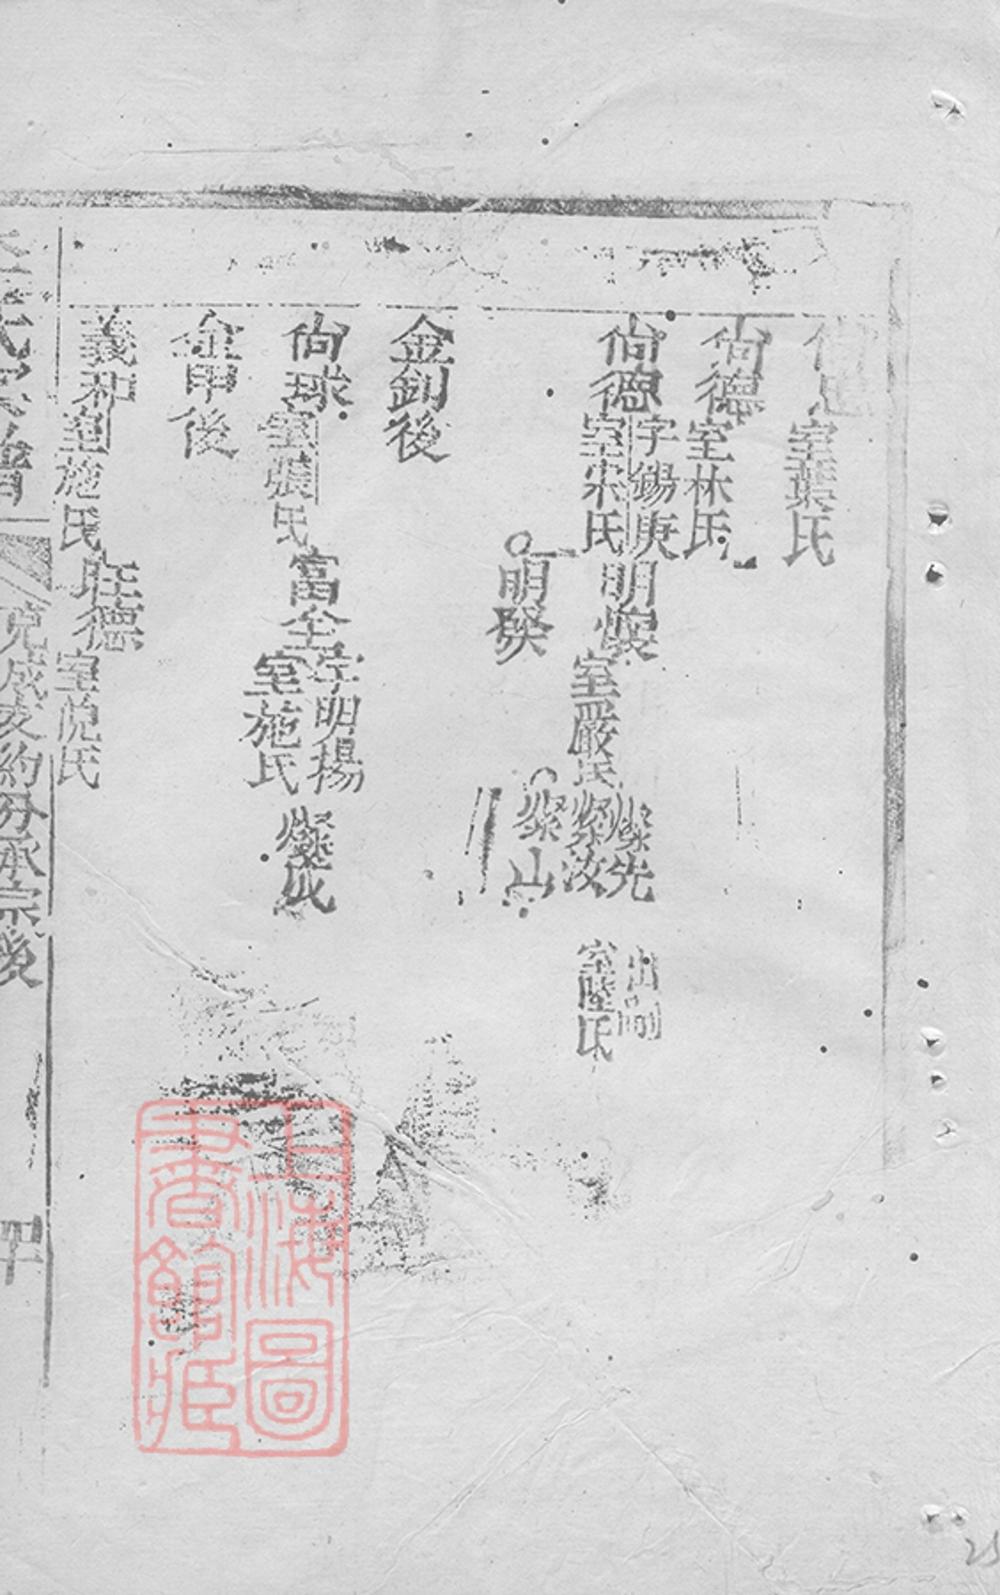 尚忠室葉氏
尚德室林氏
尚德字錫庚室宋氏明燦室嚴氏燦先出嗣
燦汝室陸氏
燦山
明癸
金釗後
尚球室張氏富全字明揚室施氏燦成
金甲後
義和室施氏旺德室倪氏
氏家譜 克成支約分承宗後
上海圖書館藏
25